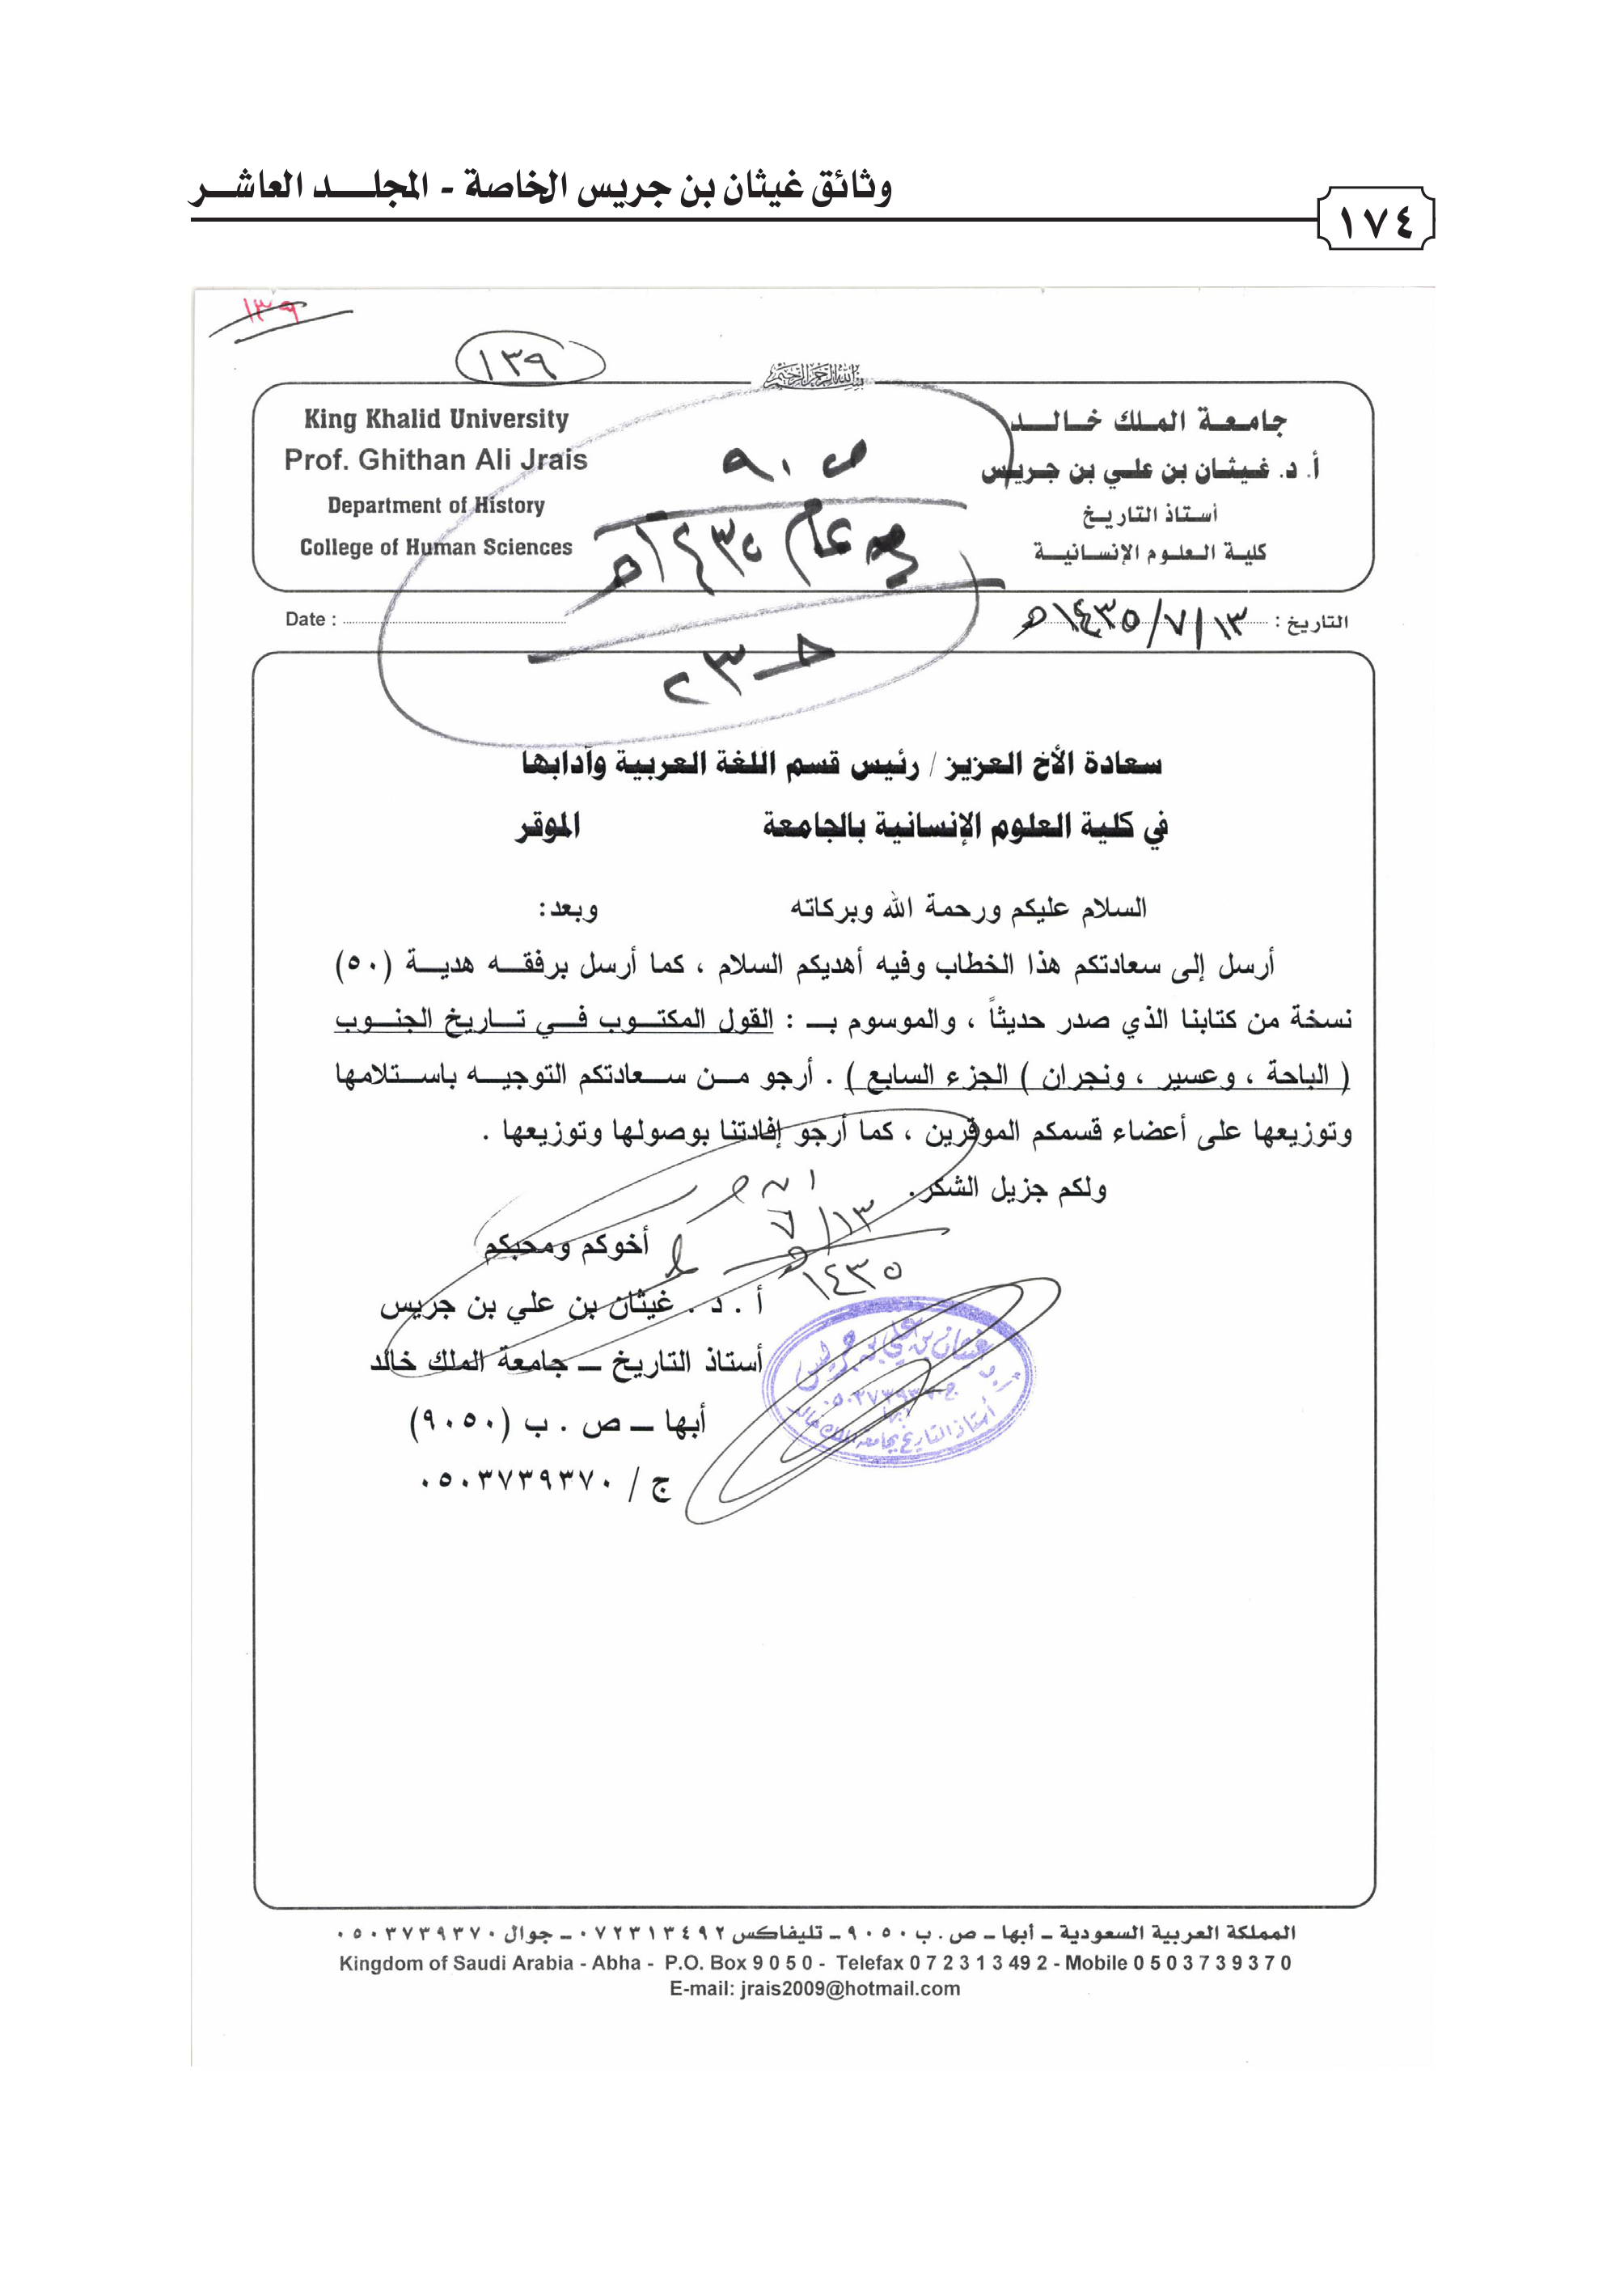 وثائق غيثان بن جريس الخاصة - المجلد العاشر
١٧٤
١٣٩
١٣٩
بسم الله الرحمن الرحيم
جامعة الملك خالد
أ. د. غيثان بن علي بن جريس
أستاذ التاريخ
كلية العلوم الإنسانية
King Khalid University
Prof. Ghithan Ali Jrais
Department of History
College of Human Sciences
التاريخ : ١٣/٧/١٤٣٥هـ
Date :
سعادة الأخ العزيز / رئيس قسم اللغة العربية وآدابها
في كلية العلوم الإنسانية بالجامعة الموقر
السلام عليكم ورحمة الله وبركاته وبعد:
أرسل إلى سعادتكم هذا الخطاب وفيه أهديكم السلام ، كما أرسل برفقه هدية (٥٠)
نسخة من كتابنا الذي صدر حديثاً ، والموسوم بـ : القول المكتوب في تاريخ الجنوب
( الباحة ، وعسير ، ونجران ) الجزء السابع ) . أرجو من سعادتكم التوجيه باستلامها
وتوزيعها على أعضاء قسمكم الموقرين ، كما أرجو إفادتنا بوصولها وتوزيعها .
ولكم جزيل الشكر.
١٣/٧
١٤٣٥هـ
أخوكم ومحبكم
أ . د . غيثان بن علي بن جريس
أستاذ التاريخ – جامعة الملك خالد
أبها – ص . ب (٩٠٥٠)
ج / ٠٥٠٣٧٣٩٣٧٠
أ.د غيثان بن علي بن جريس
ج ٠٥٠٣٧٣٩٣٧٠
أبها
أستاذ التاريخ بجامعة الملك خالد
المملكة العربية السعودية – أبها – ص . ب ٩٠٥٠ – تليفاكس ٠٧٢٣١٣٤٩٢ – جوال ٠٥٠٣٧٣٩٣٧٠
Kingdom of Saudi Arabia - Abha - P.O. Box 9 0 5 0 - Telefax 0 7 2 3 1 3 49 2 - Mobile 0 5 0 3 7 3 9 3 7 0
E-mail: jrais2009@hotmail.com